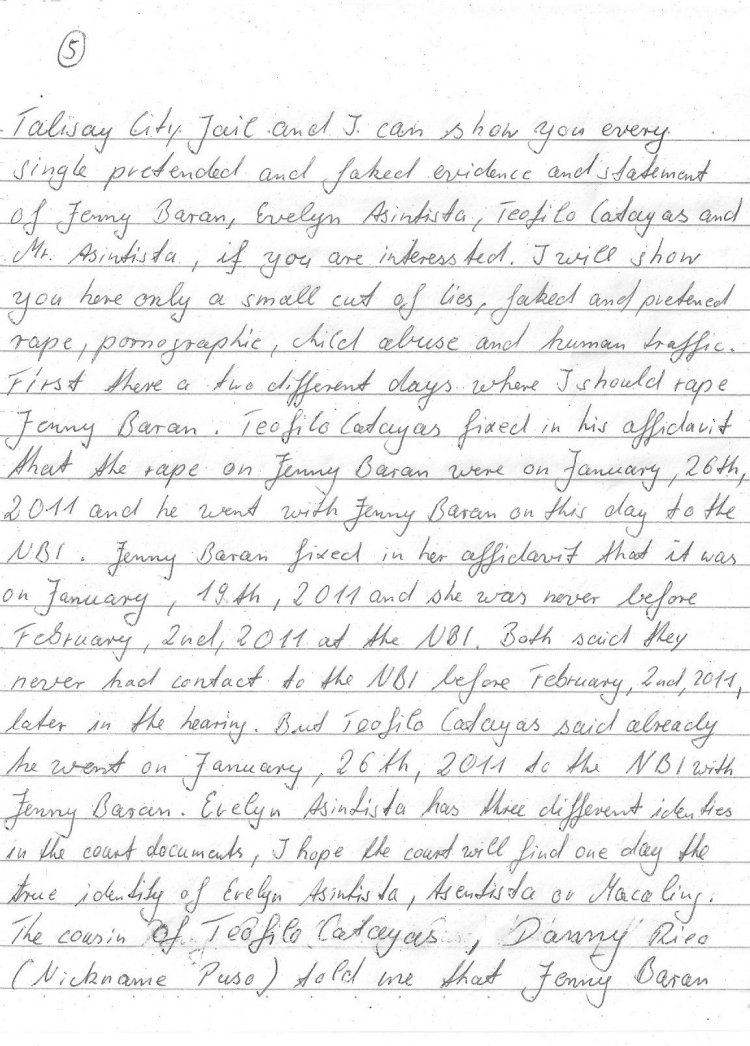 5
Talisay City Jail and I can show you every
single pretended and faked evidence and statement
of Jenny Baran, Evelyn Asintista, Teofilo Catayas and
Mr. Asintista, if you are interessted. I will show
you here only a small cut of lies, faked and pretened
rape, pornographic, child abuse and human traffic.
First there a two different days where I should rape
Jenny Baran. Teofilo Catayas fixed in his affidavit
that the rape on Jenny Baran were on January, 26th,
2011 and he went with Jenny Baran on this day to the
NBI. Jenny Baran fixed in her affidavit that it was
on January, 19th, 2011 and she was never before
February, 2nd, 2011 at the NBI. Both said they
never had contact to the NBI before February, 2nd, 2011,
later in the hearing. But Teofilo Catayas said already
he went on January, 26th, 2011 to the NBI with
Jenny Baran. Evelyn Asintista has three different identies
in the court documents, I hope the court will find one day the
true identity of Evelyn Asintista, Asentista or Macaling.
The cousin of Teofilo Catayas, Danny Rico
(Nickname Puso) told me that Jenny Baran